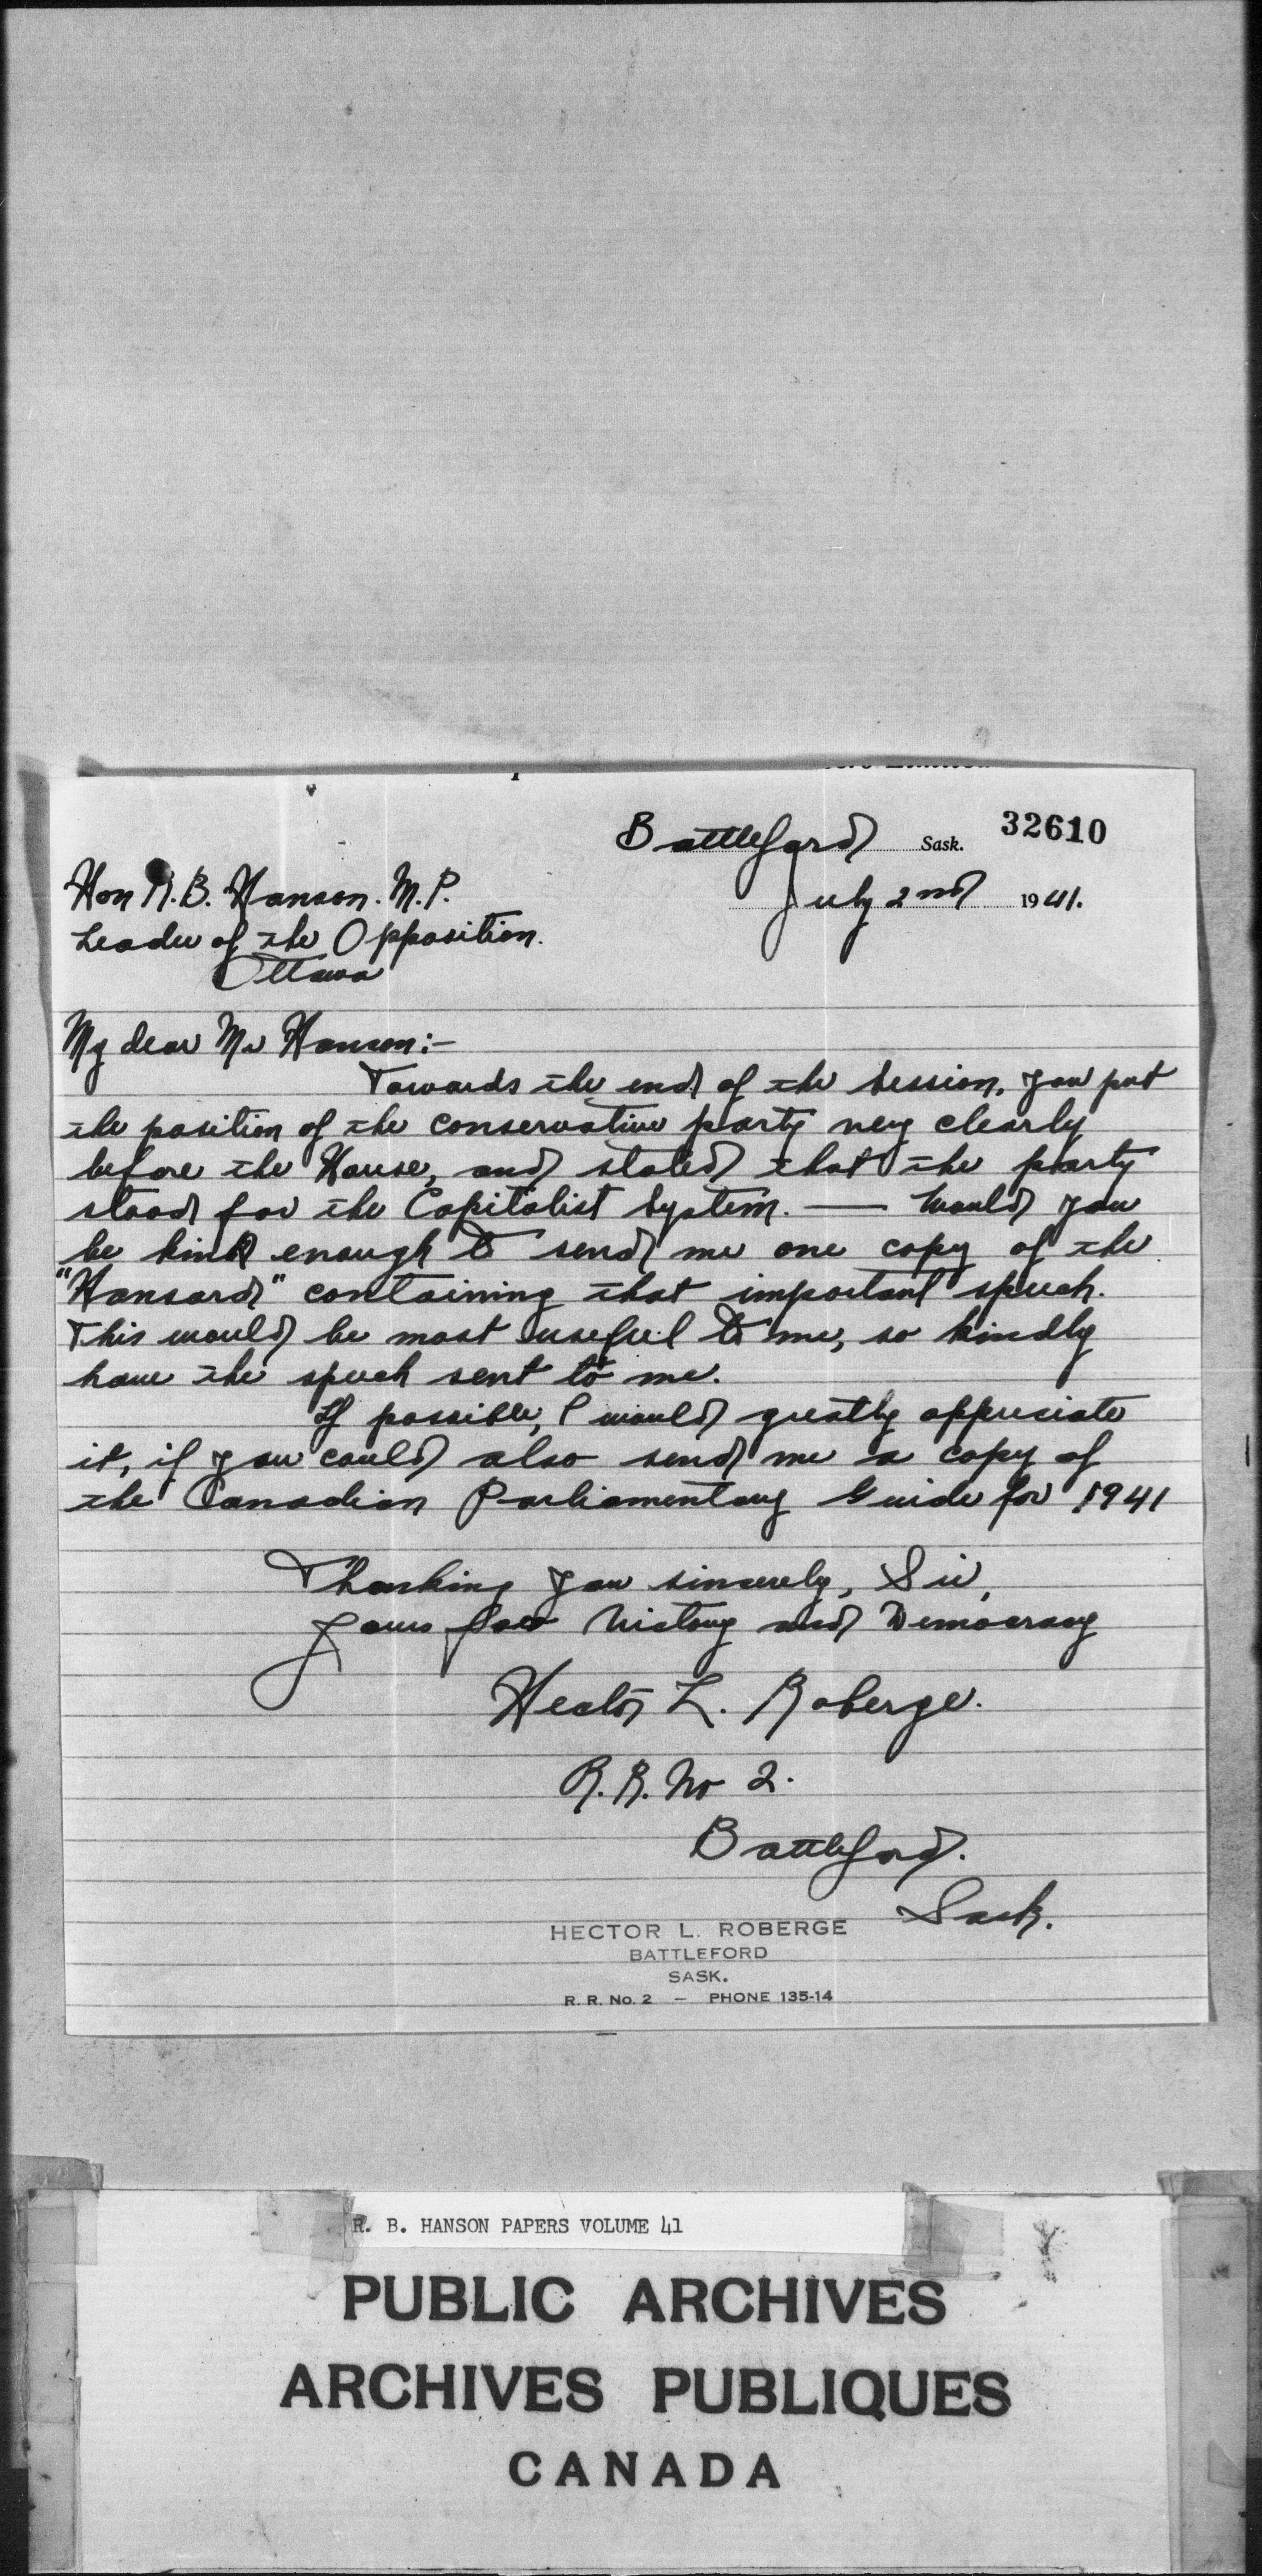 Battleford Sask. 32610
July 2nd 1941.
Hon R. B. Hanson. M.P.
Leader of the Opposition.
Ottawa
My dear Mr Hanson:-
Towards the end of the session, you put
the position of the conservative party very clearly
before the House, and stated that the party
stood for the Capitalist System. — Would you
be kind enough to send me one copy of the
"Hansard" containing that important speech.
This would be most useful to me, so kindly
have the speech sent to me.
If possible, I would greatly appreciate
it, if you could also send me a copy of
the Canadian Parliamentary Guide for 1941
Thanking you sincerely, Sir,
Yours for Victory and Democracy
Hector L. Roberge.
R.R. No 2.
Battleford.
Sask.
HECTOR L. ROBERGE
BATTLEFORD
SASK.
R. R. No. 2 — PHONE 135-14
R. B. HANSON PAPERS VOLUME 41
PUBLIC ARCHIVES
ARCHIVES PUBLIQUES
CANADA